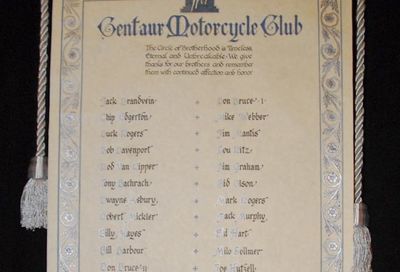 Centaur Motorcycle Club
The Circle of Brotherhood is Timeless,
Eternal and Unbreakable. We give
thanks for our brothers and remember
them with continued affection and honor
Jack Brandvein + Don Bruce I
Chip Edgerton + Mike Webber
Buck Rogers + Jim Mantis
Bob Davenport + Lou
Rod Van Tipper + Jim Graham
Tony Bachrach + Sid Olson
Dwayne Asbury + Mark Rogers
Robert Mickler + Jack Murphy
Billy Hayes + Ed Hart
Bill Barbour + Milo Vollmer
Don Bruce II + Joe Hutzell